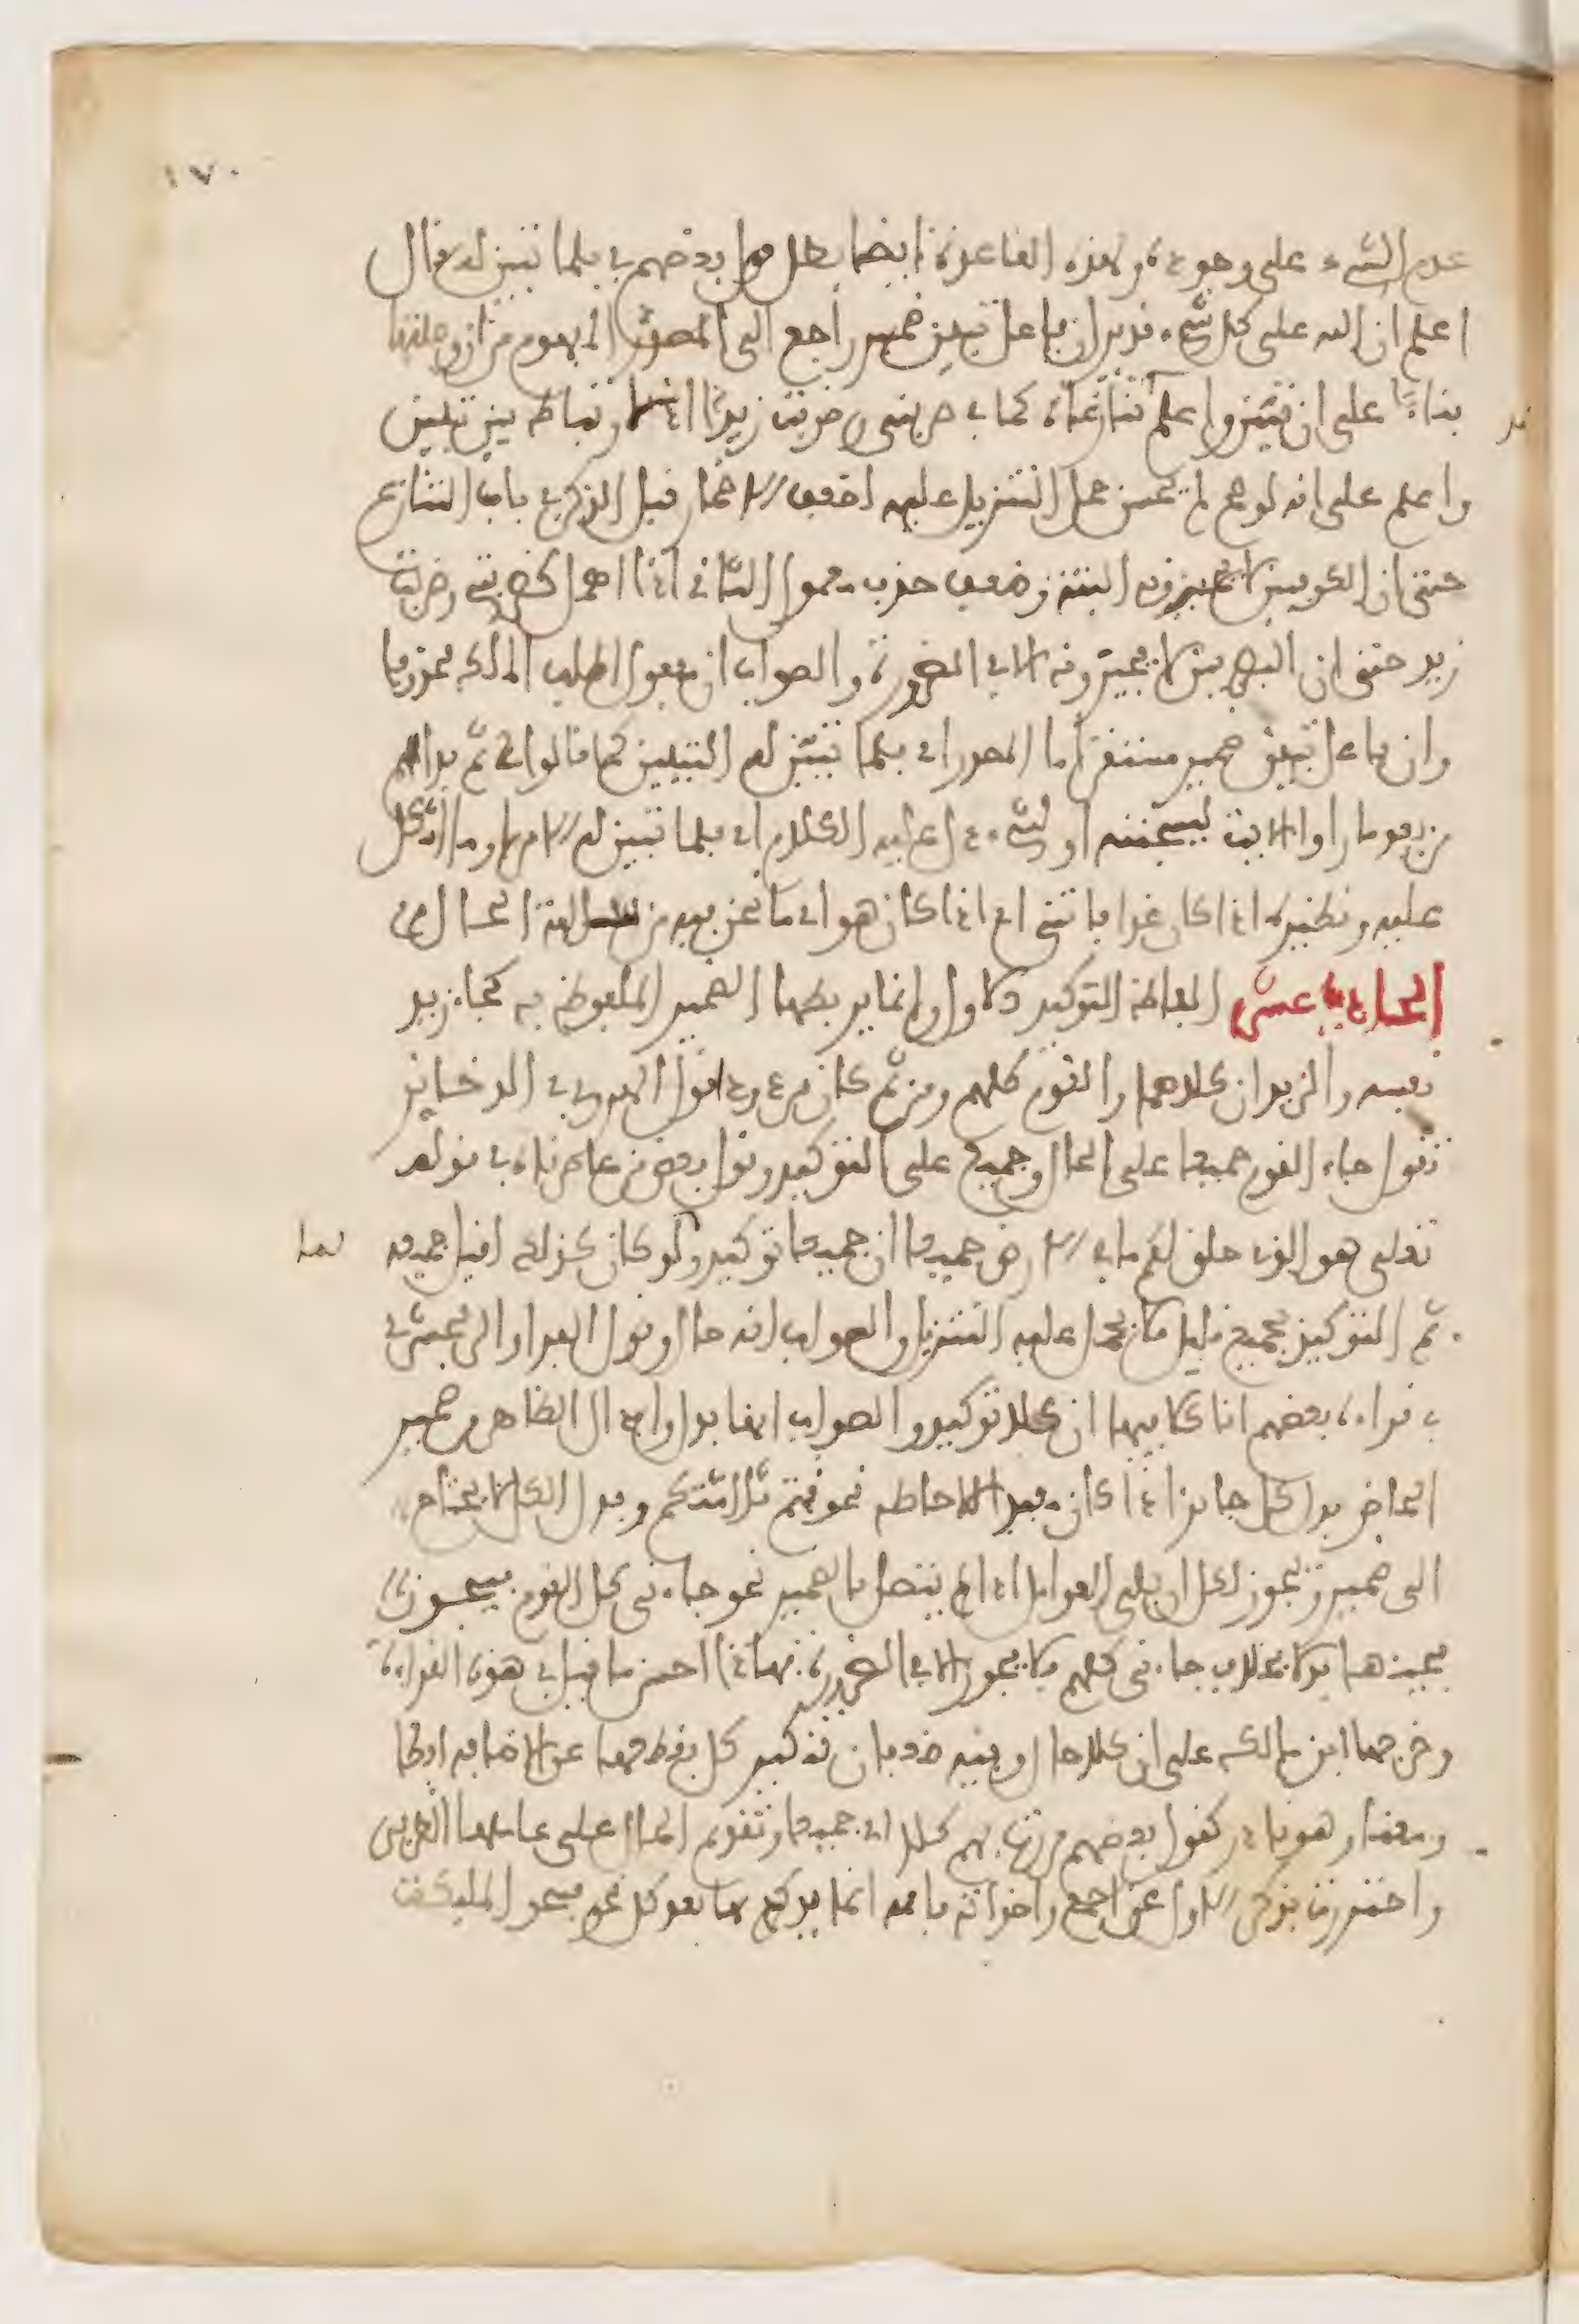 ١٧٠
عدم الشيء على وجوده ولهذه القاعدة ايضا بطل قول بعضهم في فلما تبين له قال
اعلم ان الله على كل شيء قدير ان فاعل تبين ضمير راجع الى المصدر المفهوم من ان وصلتها
بناء على ان تبين واعلم تنازعاه كما في ضربني وضربت زيدا اذ لا ارتباط بين تبين
واعلم على انه لو صح لم يحسن حمل التنزيل عليه لضعف الاضمار قبل الذكر في باب التنازع
حتى ان الكوفيين لا يجيزونه البتة وضعف حذف معمول الثاني اذا اهمل كضربني وضربت
زيد حتى ان البصريين لا يجيزونه الا في الضرورة والصواب ان مفعول اطلب الملك محذوفا
وان فاعل تبين ضمير مستتر اما المصدر اي فلما تبين له التبيين كما قالوا في ثم بدا لهم
من بعد ما راوا الايت ليسجننه او لشيء دل عليه الكلام اي فلما تبين له الامر او ما اشكل
عليه ونظيره اذا كان غدا فاتني اي اذا كان هو اي ما نحن عليه من سلامة الحال
الحادي عشر الفاظ التوكيد الاول وانما يربطها الضمير الملفوظ به كجاء زيد
نفسه والزيدان كلاهما والقوم كلهم ومن ثم كان مردودا قول الهروي في الذخاير
تقول جاء القوم جميعا على الحال وجميع على التوكيد وقول بعض من عاصرناه في قوله
تعلى هو الذي خلق لكم ما في الارض جميعا ان جميعا توكيد ولو كان كذلك لقيل جميعه
ثم التوكيد بجميع قليل فلا يحمل عليه التنزيل والصواب انه حال وقول الفراء والزمخشري
في قراءة بعضهم انا كلا فيها ان كلا توكيد والصواب انها بدل وابدال الظاهر من ضمير
الحاضر بدل كل جايز اذا كان مفيد الاحاطة نحو قمتم ثلاثتكم وبدل الكل لا يحتاج
الى ضمير ويجوز لكل ان يلي العوامل اذا لم يتصل بالضمير نحو جاءني كل القوم فيجوز
مجيئها بدلا بخلاف جاءني كلهم فلا يجوز الا في الضرورة فهذا احسن ما قيل في هذه القراءة
وخرجها ابن مالك على ان كلا حال وفيه ضعفان تنكير كل بقطعها عن الاضافة لفظا
ومعنى وهو نادر كقول بعضهم مررت بهم كلا اي جميعا وتقديم الحال على عاملها الظرفي
واحترزت بذكر الاول عن اجمع واخواته فانه انما يوكد بها بعد كل نحو فسجد المليكة
لها